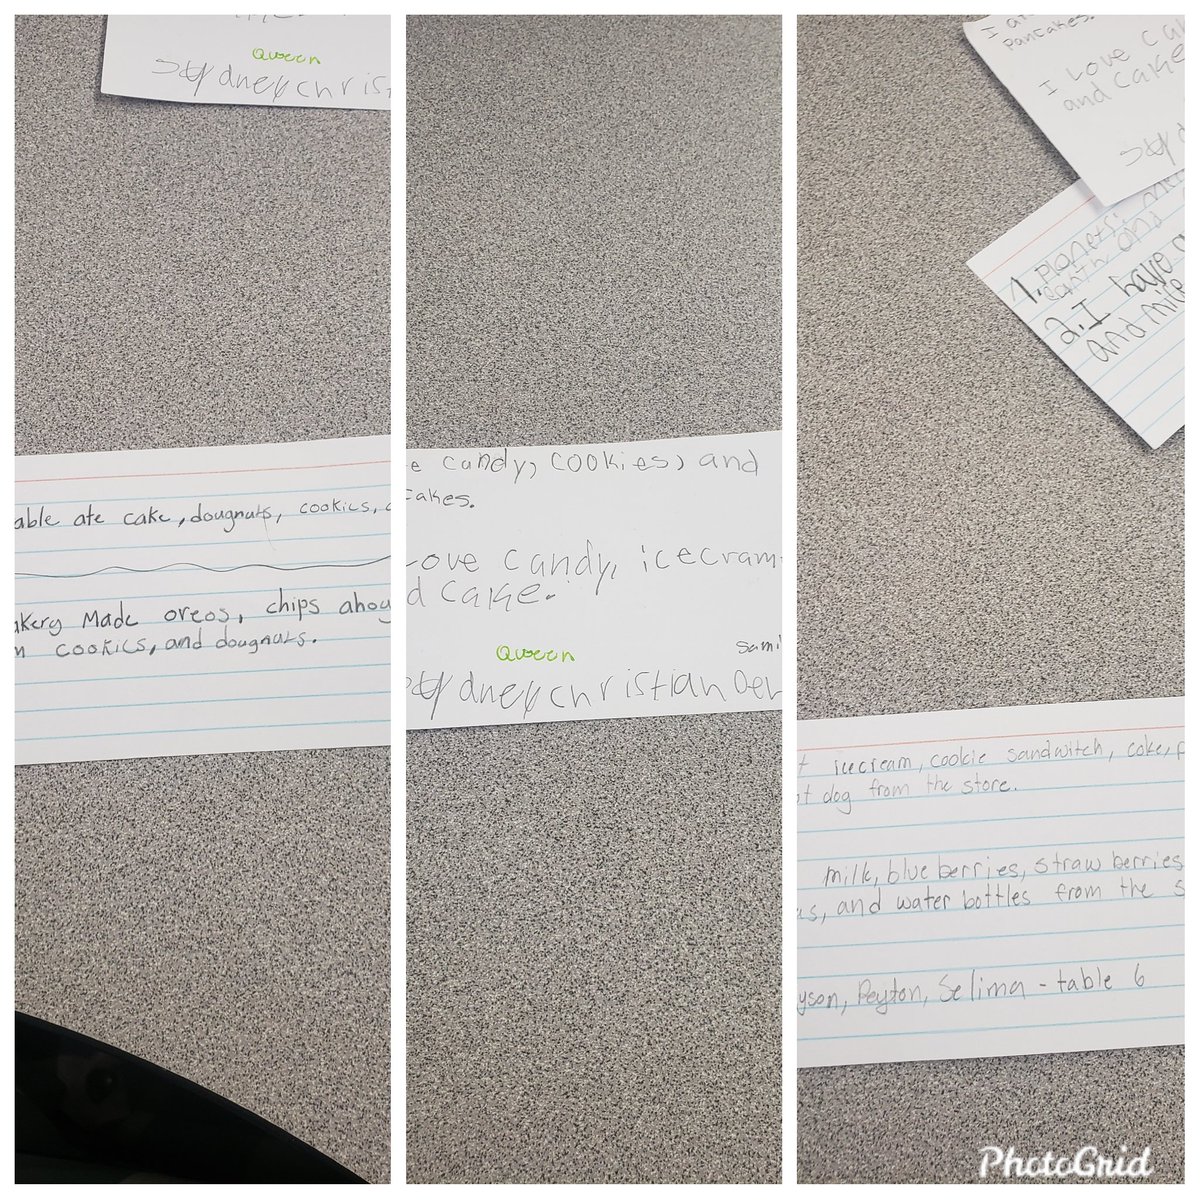 Queen
Sydneychrist
able ate cake, dougnuts, cookies,
akery Made oreos, chips ahoy
cookies, and dougnuts.
e candy, cookies, and
cakes.
Love candy, icecram
d cake.
Queen
Sami
SydneyChristian Den
I a
Pancakes.
I Love ca
and cake
1. Planets:
earth and
2. I have
and mile
t icecream, cookie sandwitch, cake, p
ot dog from the store.
milk, blue berries, straw berries
as, and water bottles from the s
yson, Peyton, Selima - table 6
PhotoGrid